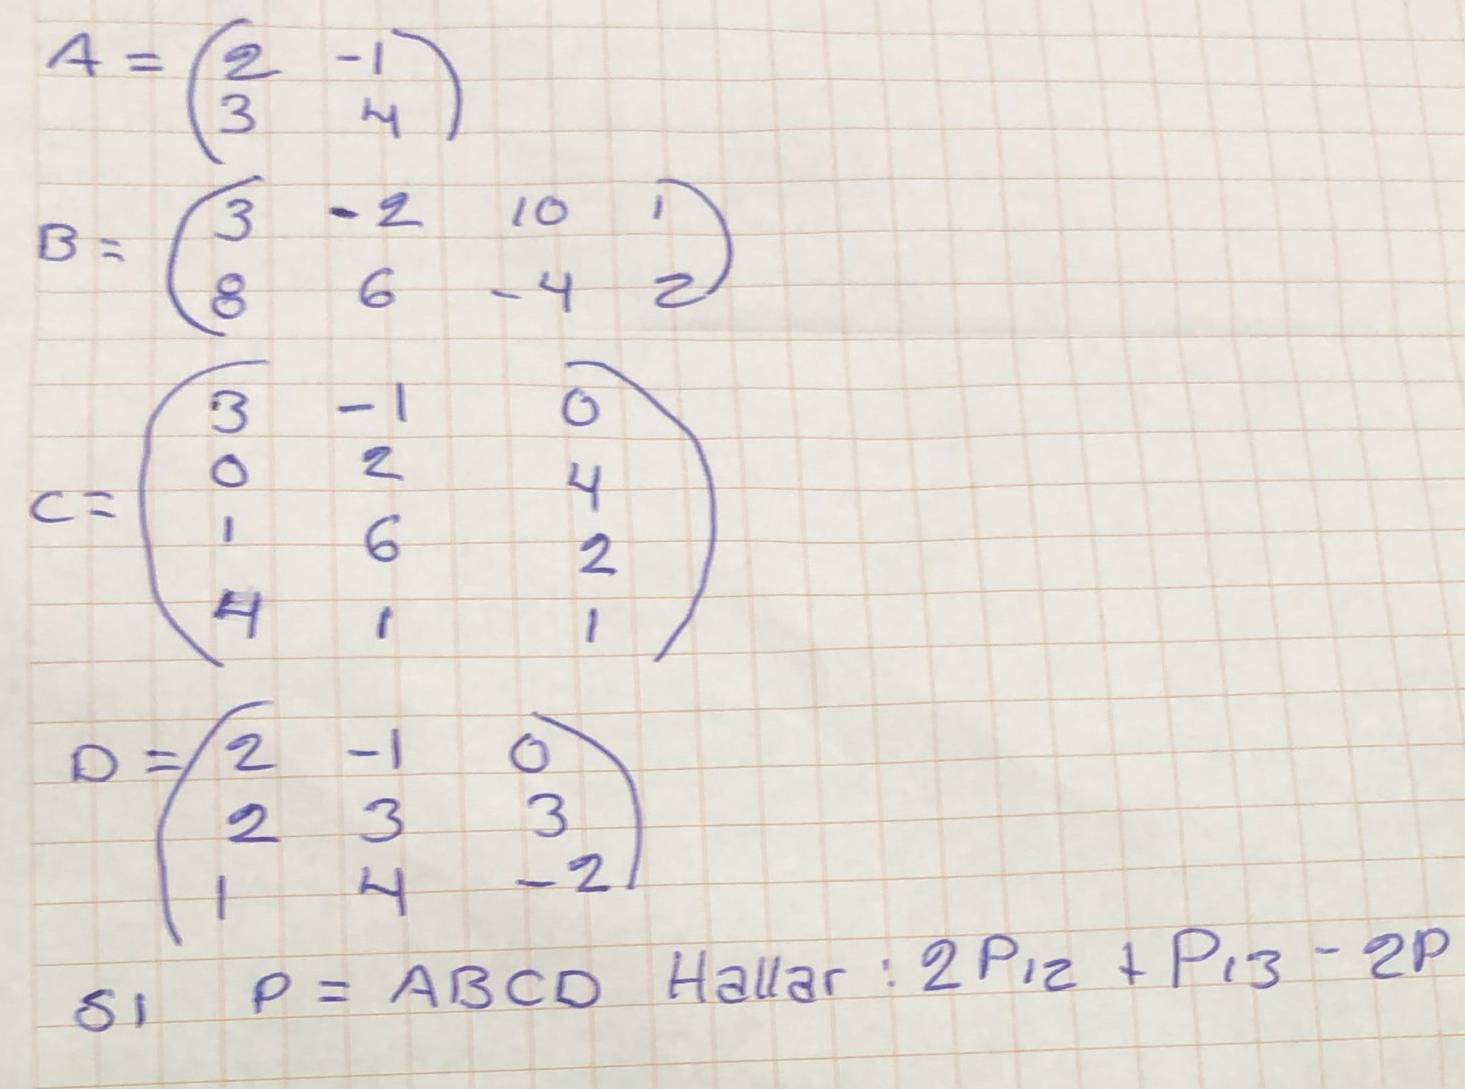 A = (2 -1
3 4)
B = (3 -2 10 1
8 6 -4 2)
C = (3 -1 0
0 2 4
1 6 2
4 1 1)
D = (2 -1 0
2 3 3
1 4 -2)
SI P = ABCD Hallar : 2P12 + P13 - 2P